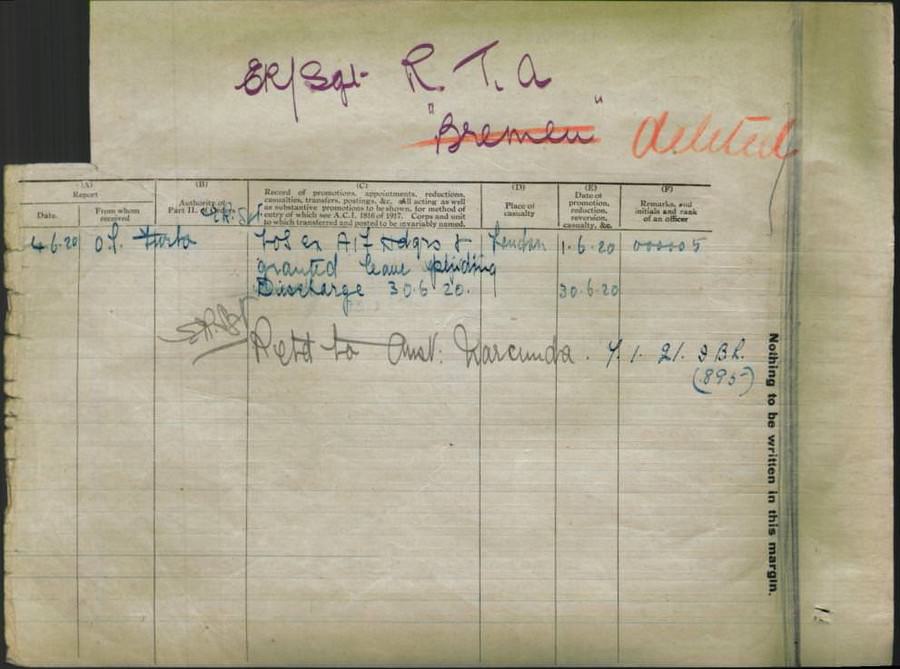 ER/Sgt R. T. A
"Bremen" deleted
(A)
Report
Date.
From whom received
(B)
Authority of Part II. Orders
(C)
Record of promotions, appointments, reductions,
casualties, transfers, postings, &c. All acting as well
as substantive promotions to be shown, for method of
entry of which see A.C.I. 1816 of 1917. Corps and unit
to which transferred and posted to be invariably named.
(D)
Place of casualty
(E)
Date of promotion, reduction, reversion, casualty, &c.
(F)
Remarks, and initials and rank of an officer
ER. Sgt
4.6.20 TOS ex A I F Hdqrs & London 1.6.20 000005
granted leave pending
Discharge 30.6.20. 30.6.20
ER/Sgt
Retd to Aust: 7.1.21.
(895)
Nothing to be written in this margin.